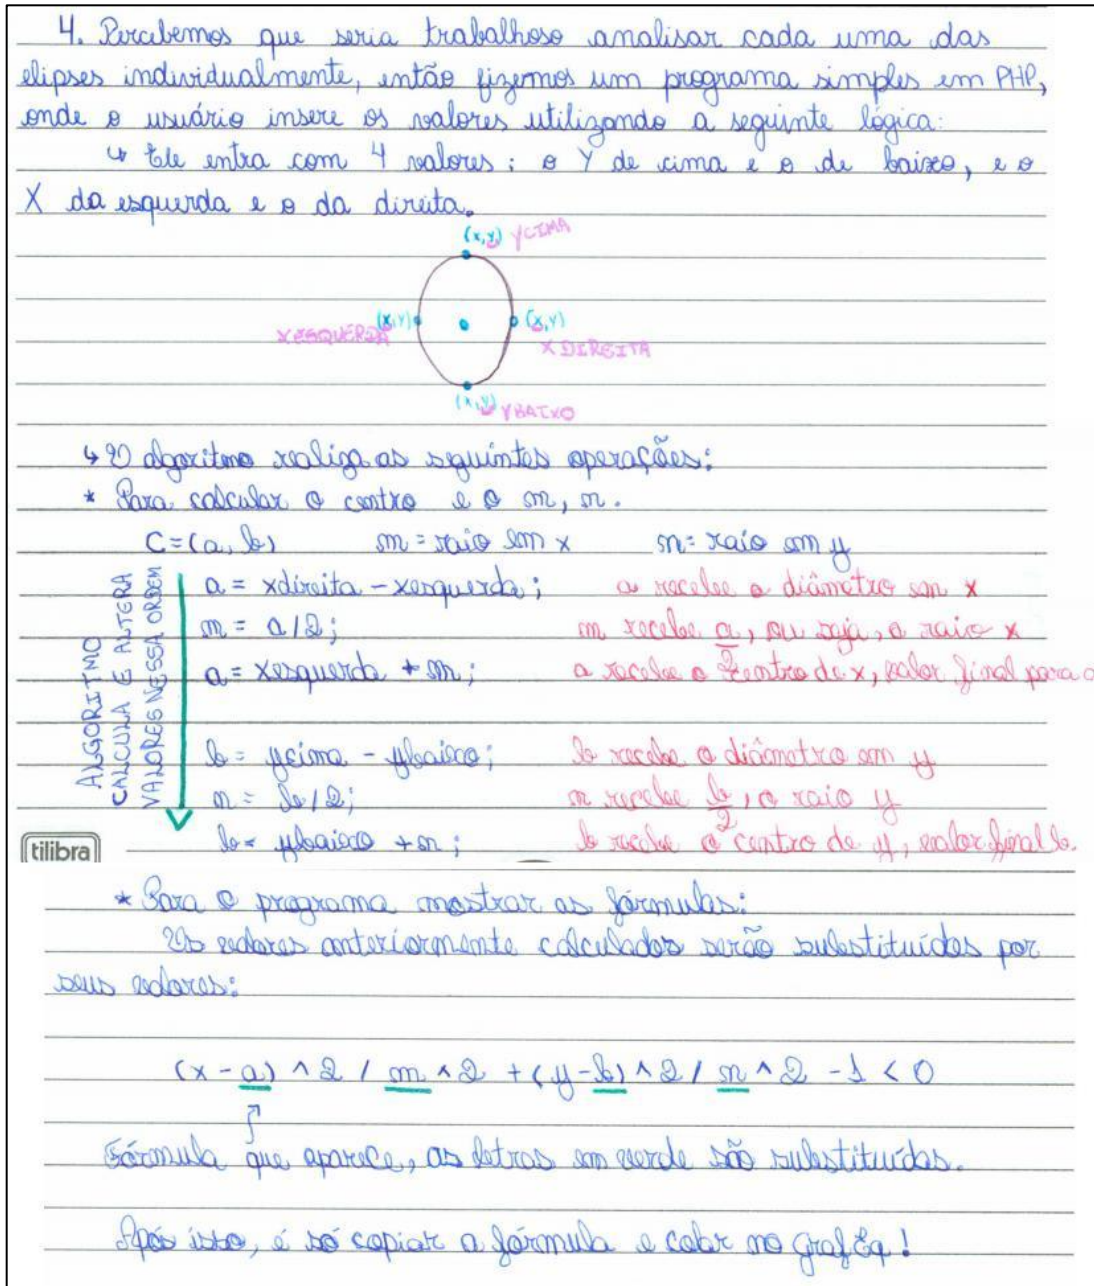 4. Percebemos que seria trabalhoso analisar cada uma das
elipses individualmente, então fizemos um programa simples em PHP,
onde o usuário insere os valores utilizando a seguinte lógica:
↳ Ele entra com 4 valores: o Y de cima e o de baixo, e o
X da esquerda e o da direita.
(x,y) YCIMA
(x,y) XESQUERDA
(x,y) XDIREITA
(x,y) YBAIXO
↳ O algoritmo realiza as seguintes operações:
* Para calcular o centro e o m, n.
C=(a, b) m = raio em x n = raio em y
ALGORITMO
CALCULA E ALTERA
VALORES NESSA ORDEM
a = xdireita - xesquerda; a recebe o diâmetro em x
m = a/2; m recebe a/2, ou seja, o raio x
a = xesquerda + m; a recebe o centro de x, valor final para a
b = ycima - ybaixo; b recebe o diâmetro em y
n = b/2; n recebe b/2, o raio y
b = ybaixo + n; b recebe o centro de y, valor final b.
tilibra
* Para o programa mostrar as fórmulas:
Os valores anteriormente calculados serão substituídos por
seus valores:
(x-a)^2 / m^2 + (y-b)^2 / n^2 - 1 < 0
Fórmula que aparece, as letras em verde são substituídas.
Após isso, é só copiar a fórmula e colar no GrafEq!